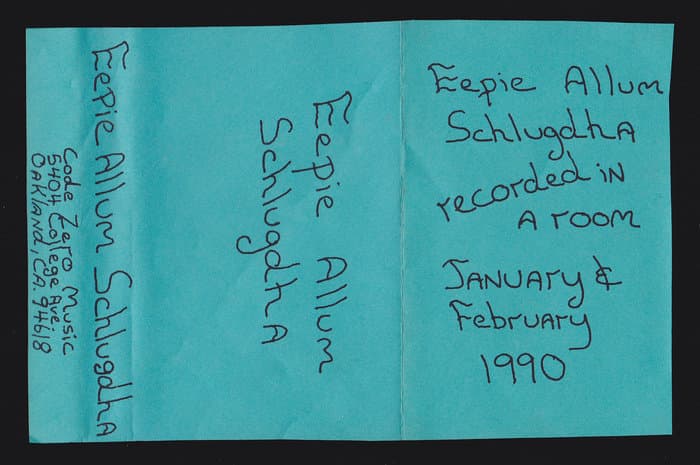 Eepie Allum
SchlugdhA
recorded iN
A room
JANuAry &
February
1990
Eepie Allum
SchlugdhA
Eepie Allum SchlugdhA
Code Zero Music
5404 College Ave.
OAklAnd, CA. 94618